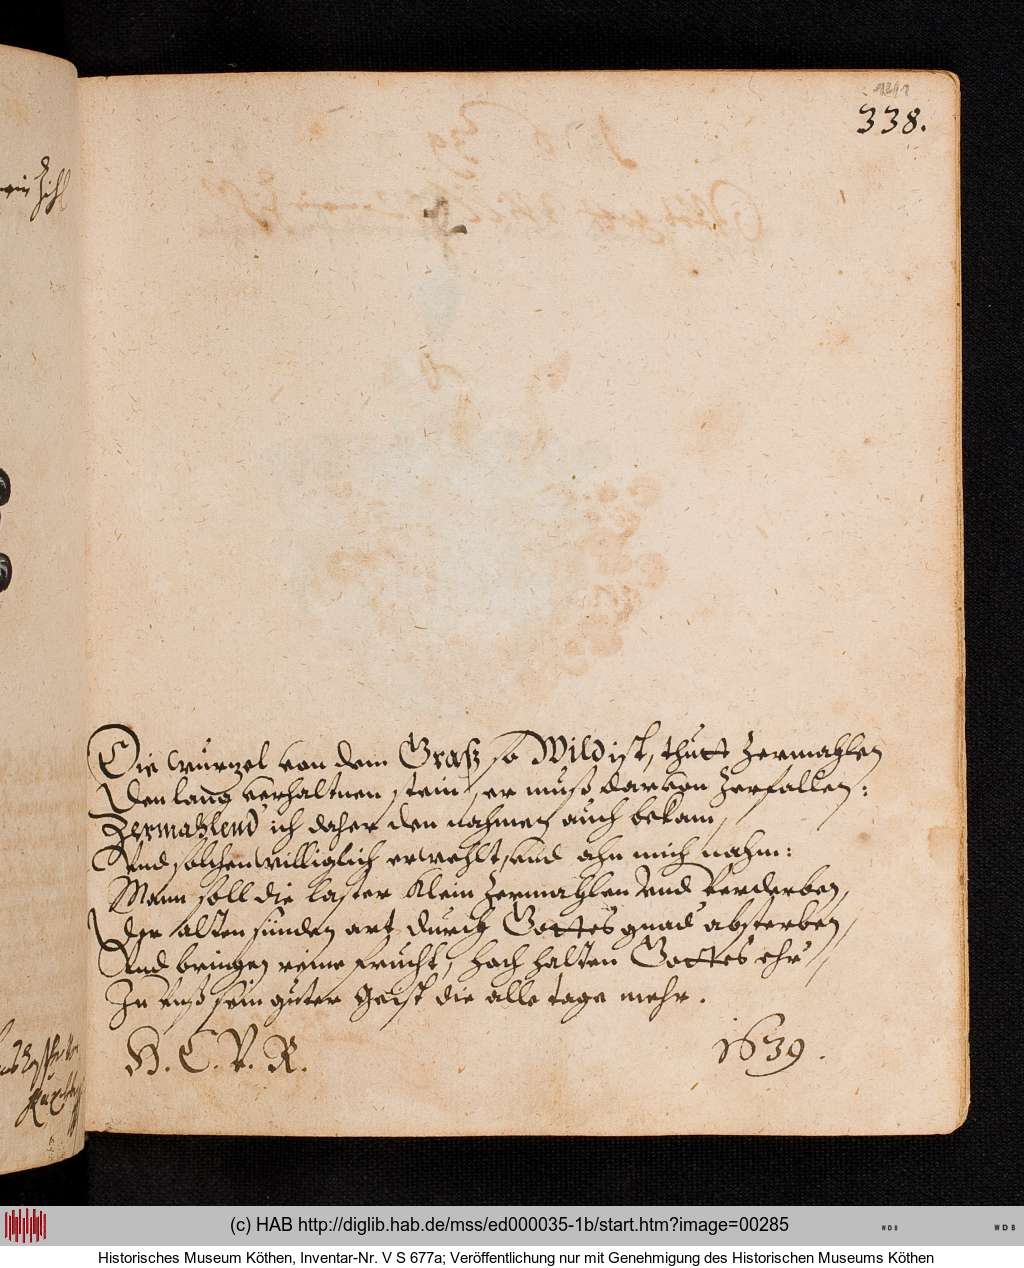 338.
Die wurzel von dem Graß so Wild ist, thutt zermahlen
Den lang verhaltnen stein, er muß darvon zerfallen:
Zermahlend ich daher den nahmen auch bekam,
Und solchen williglich erwehlt, und ahn mich nahm:
Mann soll die laster klein zermahlen und verderben,
Der alten sünden art durch Gottes gnad absterben,
Und bringen reine frucht, hoch halten Gottes ehr,
In unß sein guter Geist die alle tage mehr.
H. C. V. R. 1639.
(c) HAB http://diglib.hab.de/mss/ed000035-1b/start.htm?image=00285
WDB
WDB
Historisches Museum Köthen, Inventar-Nr. V S 677a; Veröffentlichung nur mit Genehmigung des Historischen Museums Köthen